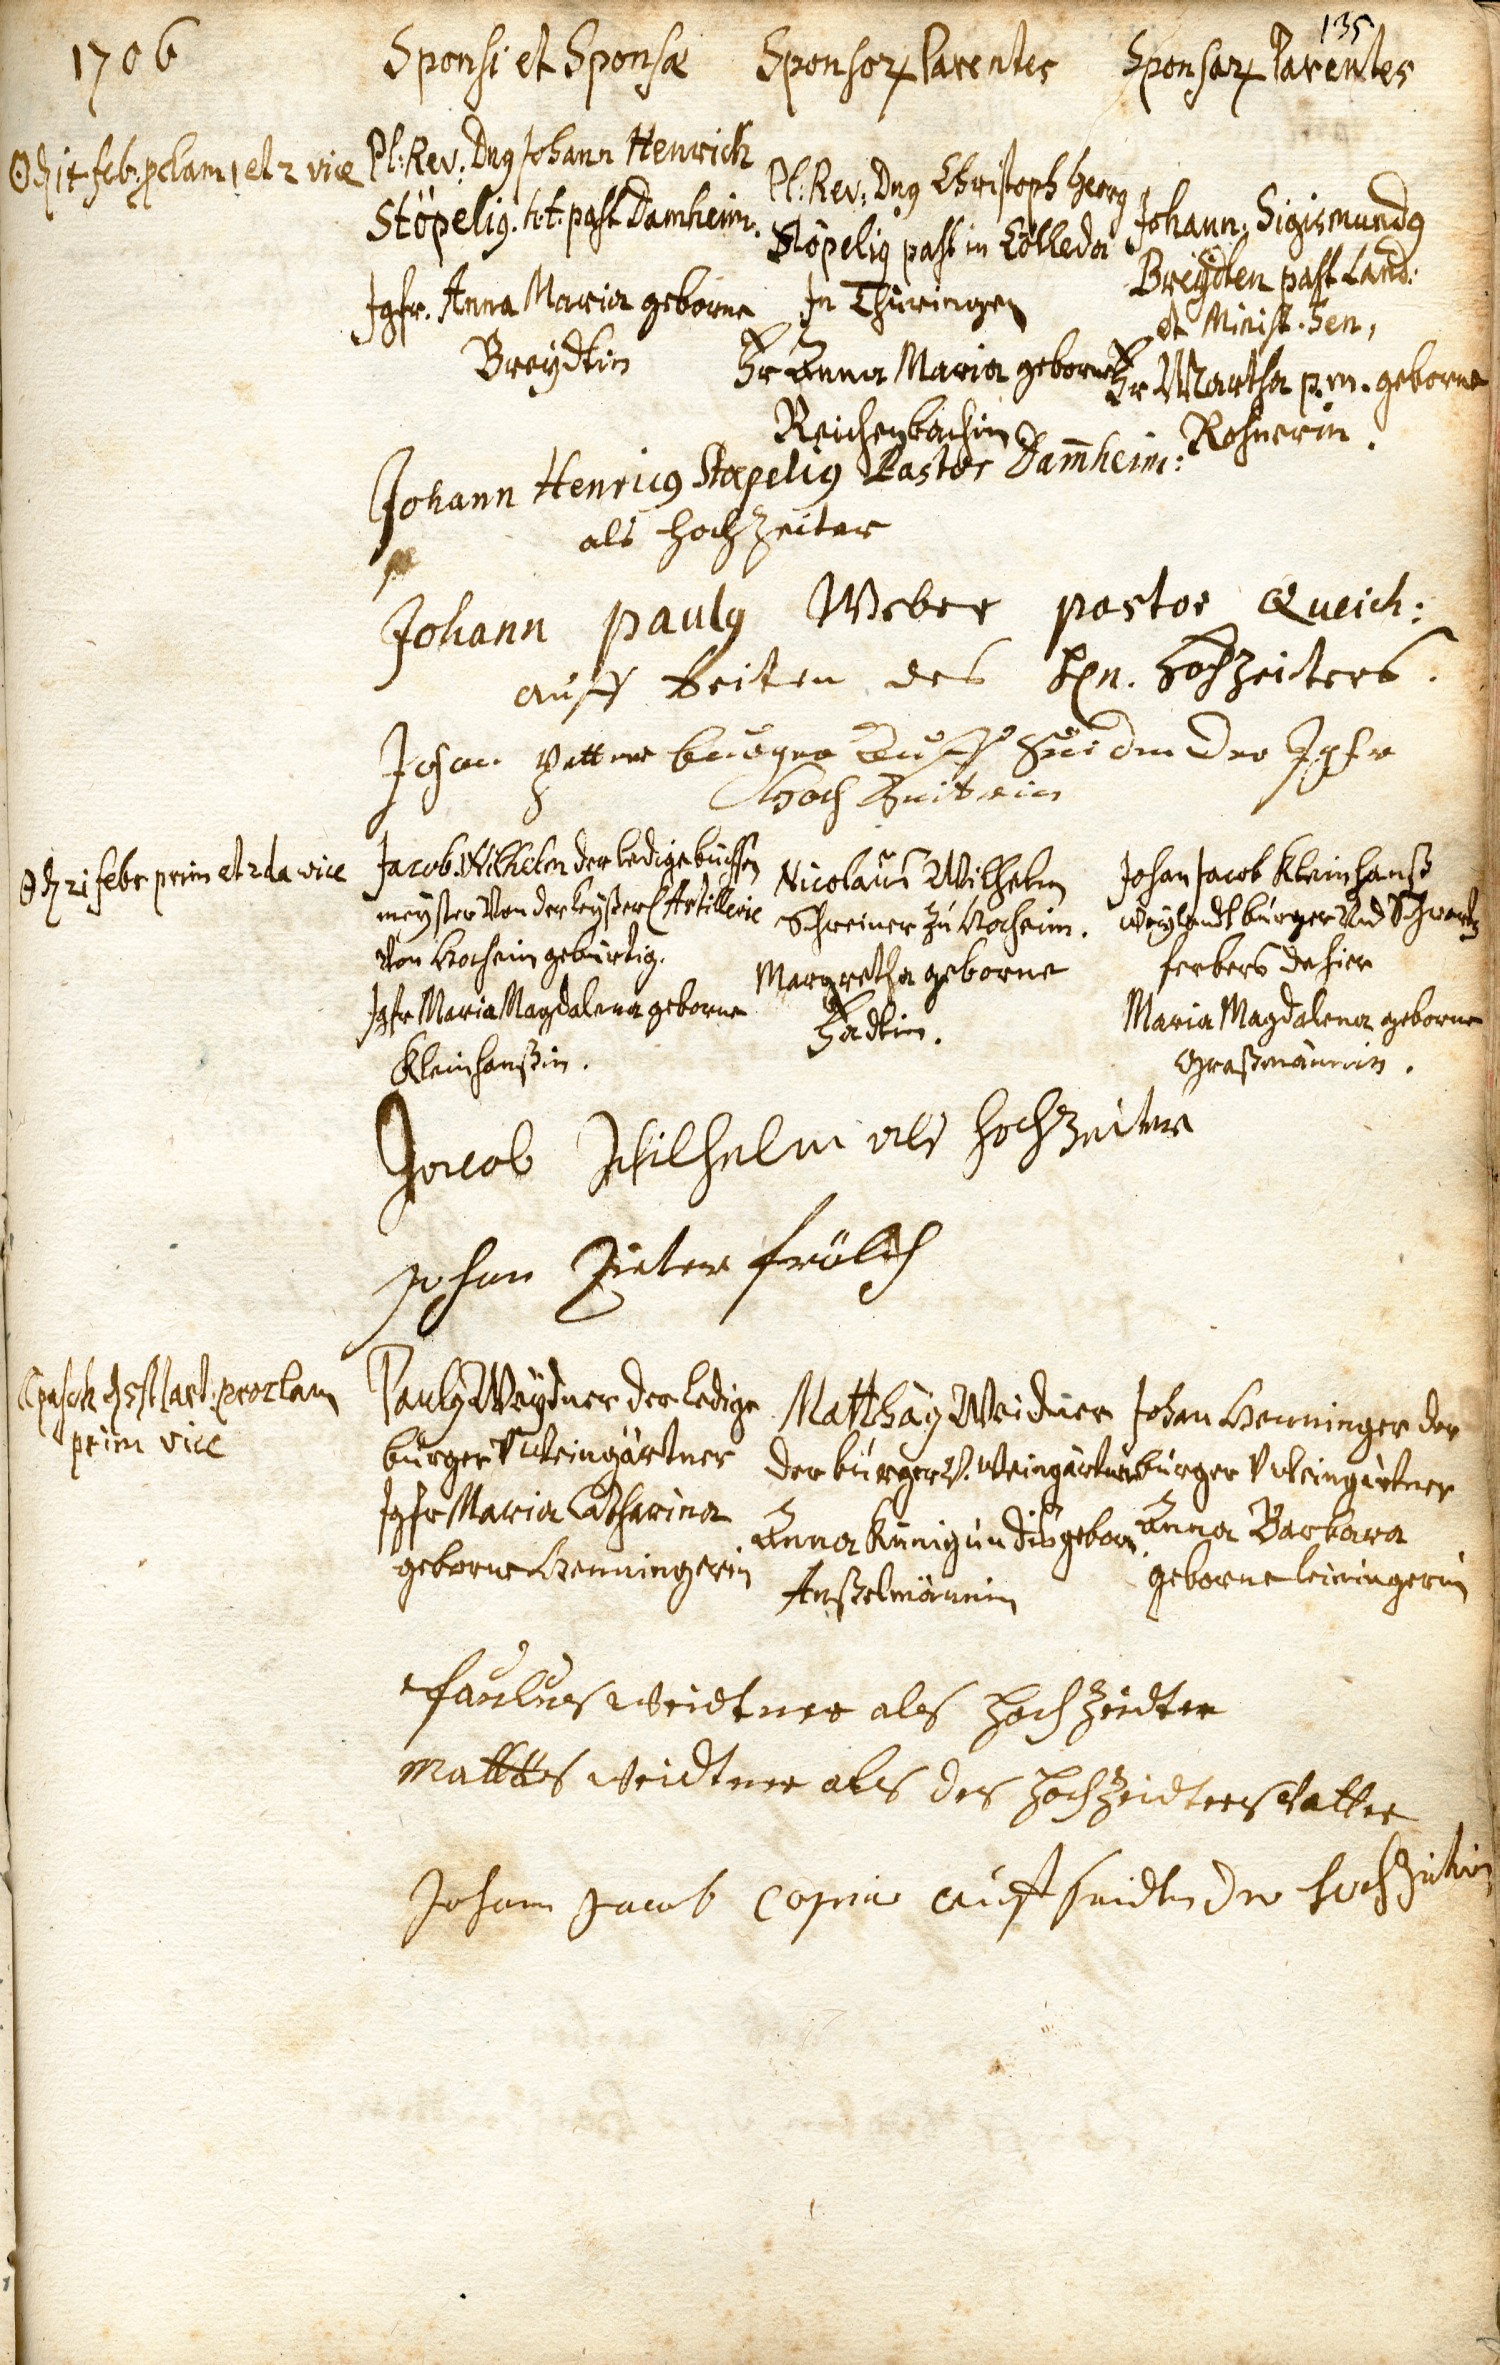 135
1706
Sponsi et Sponsæ
Sponsor Parentes
Sponsar Parentes
feb. pclam 1 et 2 vice
Pl: Rev: Dng Johann Henrich
Stöpelig. h.t. past Damheim.
Jgfr. Anna Maria geborne
Breydtin
Pl: Rev: Dng Christoph Georg
Stöpelig past in Cölleda
In Thüringen
Fr Anna Maria geborne
Reichenbachin
Johann: Sigismundg
Breydten past Land:
et Minist. Sen,
Fr Martha p.m. geborne
Rosnerin.
Johann Henricg Stœpelig Pastor Dam̄heim:
als hochzeiter
Johann Paulg Weber pastor Queich:
auff seiten des hn. hochzeiters.
Johan der Jgfr
hoch Zeiterin
21 febr prim et 2da vice
Jacob Wilhelm der ledige büchssen
meyster von der keyßerl Artillerie
von Hocheim gebürtig.
Jgfr Maria Magdalena geborne
Kleinhanßin.
Nicolaus Wilhelm
Schreiner zu Hocheim.
Margretha geborne
Johan Jacob Kleinhanß
weylandt bürger und Schwartz
ferbers dahier
Maria Magdalena geborne
Graßmännin.
Jacob Wilhelm als hochzeiter
Johan Pieter frölich
proclam
prim vice
Paulg Weydner der ledige
bürger V weingärtner
Jgfr Maria Catharina
geborne Henningerin
Matthäg Weidner
der bürger V. Weingärtner
Anna Kunigundis geborn
Anßelmännin
Johan Henninger der
bürger V weingärtner
Anna Barbara
geborne leiningerin
Paulus weidtner als hoch Zeidter
Matttes weidtner als des hochZeidters vatter
Johann Jacob auff seidten der hochZeitrin